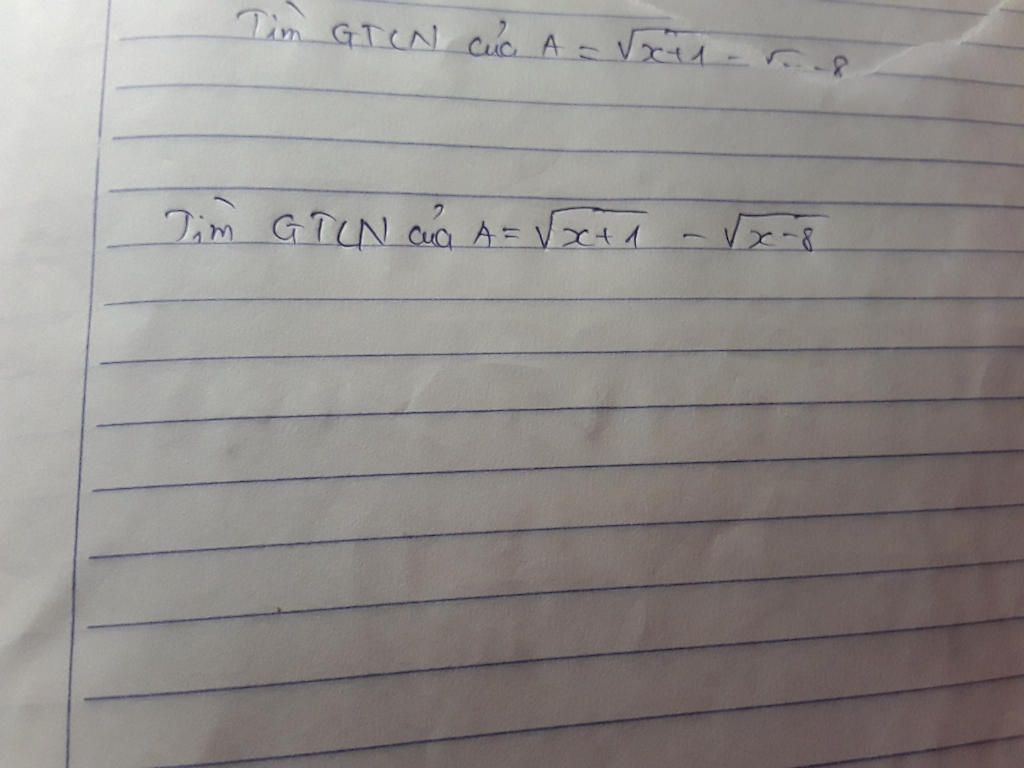 Tìm GTLN của A = √x+1 - √... -8
Tìm GTLN của A = √x+1 - √x-8